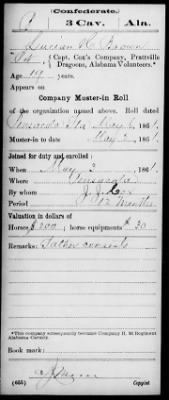 (Confederate.)
C 3 Cav. Ala.
Lucian H. Brown
Pvt (Capt. Cox's Company, Prattville
Dragoons, Alabama Volunteers.*
Age 19 years.
Appears on
Company Muster-in Roll
of the organization named above. Roll dated
Pensacola Fla May 6, 1861.
Muster-in to date May 1861.
Joined for duty and enrolled:
When May 3, 1861.
Where Pensacola
By whom J. J. Cox
Period 12 Months
Valuation in dollars of
Horse, $200; horse equipments $ 30
Remarks: Father consents
*This company subsequently became Company H, 3d Regiment
Alabama Cavalry.
Book mark:
(655) Copyist